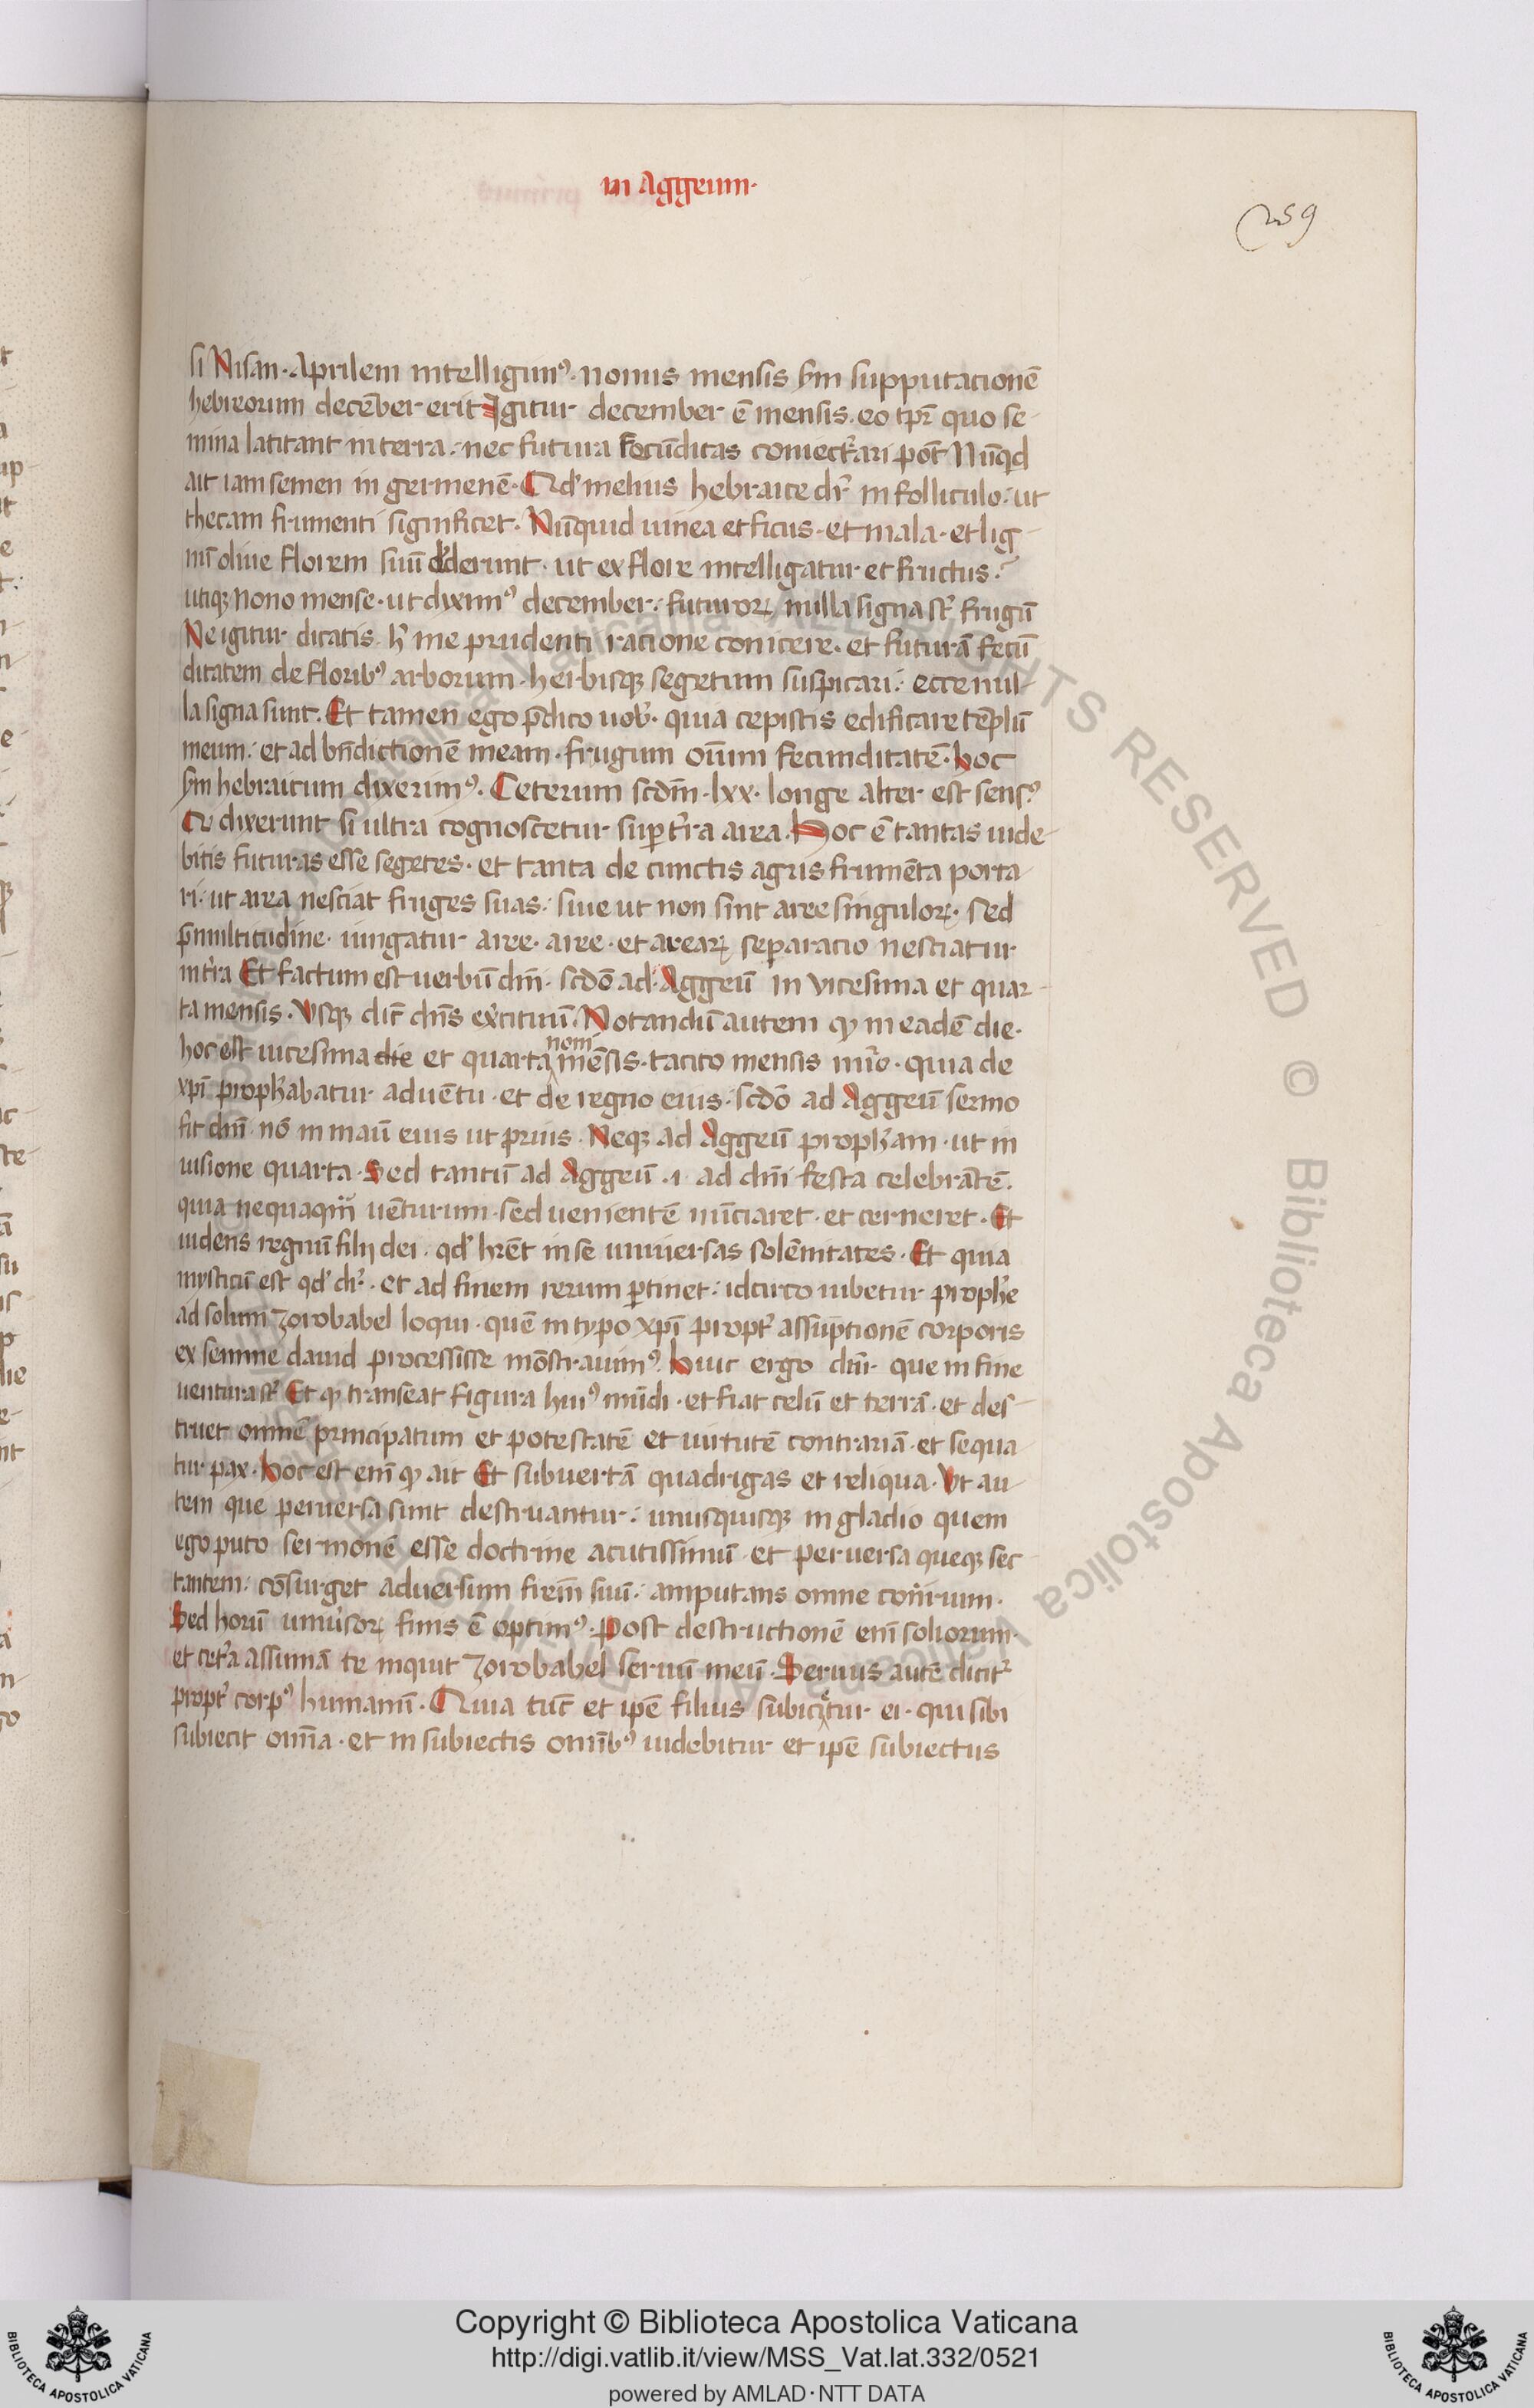 in Aggeum·
259
si Nisan· Aprilem intelligim᷒· nonus mensis s̃m supputacionē
hebreorum decēber erit Igitur december ē mensis· eo tp̃r quo se-
mina latitant in terra·: nec futura fecūditas coniect̃ari pot̃ Nūqd
ait iam semen in germenē· Qd̓ melius hebraice dr̃ in folliculo·: ut
thecam frumenti significet· Nūquid uinea et ficus· et mala· et lig-
nũ oliue florem suū dederunt· ut ex flore intelligatur et fructus·?
utiqꝫ nono mense· ut dyxim᷒ december·: futuroꝝ nulla signa st̃ frugū
Ne igitur dicatis h̃ me prudenti racione conicere· et futurā fecū
ditatem de florib᷒ arborum herbisqꝫ segetum suspicari·: ecce nul-
la signa sunt· Et tamen ego p̄dico uob̃· quia cepistis edificare tēplū
meum·: et ad bn̄dictionē meam· frugum om̄um fecunditatē· hoc
s̃m hebraicum dixerim᷒· Ceterum scdm̄ ·lxx· longe alter est sens᷒
Qi dixerunt si ultra cognoscetur sup̱ t̃ra area· Hoc ē tantas uide-
bitis futuras esse segetes· et tanta de cunctis agris frumēta porta-
ri· ut area nesciat fruges suas·: siue ut non sint aree singuloꝝ· sed
p̄ multitudine· iungatur aree· aree· et areaꝝ separacio nesciatur
int̃ra Et factum est uerbū dn̄i· scdō ad· Aggeū in vicesima et quar-
ta mensis· Vsqꝫ dic̃ dn̄s ex̃cituū· Notandū autem ꝙ in eadē die·
hoc est uicesima die et quarta noni mēsis· tacito mensis nūo· quia de
xp̄i proph̃abatur aduētu· et de regno eius· scdō ad Aggeū sermo
fit dn̄i· nō in manū eius ut prius· Neqꝫ ad Aggeū proph̃am· ut in
uisione quarta· Sed tantū ad Aggeū ·i· ad dn̄i festa celebrātē·
quia nequaqm̃ uēturum· sed uenientē nūciaret· et cerneret· Et
uidens regnū filij dei· qd̓ hr̄et in se uniuersas solēnitates· Et quia
mysticū est qd̓ dr̃· et ad finem rerum p̱tinet·: idcirco iubetur proph̃e
ad solum Zorobabel loqui· quē in typo xp̄i propt̃ assūptionē corporis
ex semine dauid processisse mōstrauim᷒· huic ergo dn̄r que in fine
uentura st̃ Et ꝙ transeat figura hui᷒ mūdi· et fiat celū et terrā· et des-
truet omnē principatum et potestatē et uirtutē contrariā· et sequa-
tur pax· hoc est enī ꝙ ait Et subuertā quadrigas et reliqua· Vt au-
tem que peruersa sunt destruantur·: unusquisqꝫ in gladio quem
ego puto sermonē esse doctrine acutissimū· et peruersa queqꝫ sec-
tantem·: cōsurget aduersum frem̄ suū·: amputans omne cont̃rium·
Sed horū uniũsoꝝ finis ē optim᷒· Post destructionē enī soliorum·
et cet̃a assumā te inquit Zorobabel seruū meū· Seruus autē dicit᷑
propt̃ corp᷒ humanū· Quia tūc et ip̄e filius subicietur ei· qui sibi
subiecit om̄ia· et in subiectis om̄ib᷒ uidebitur et ip̄e subiectus
Copyright © Biblioteca Apostolica Vaticana
http://digi.vatlib.it/view/MSS_Vat.lat.332/0521
powered by AMLAD·NTT DATA